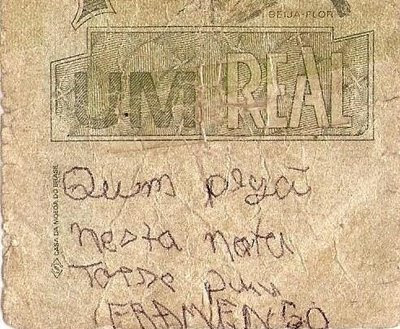 BEIJA-FLOR
UM REAL
CASA DA MOEDA DO BRASIL
Quem pega
nesta nota
Torse puru
FRAMENGO